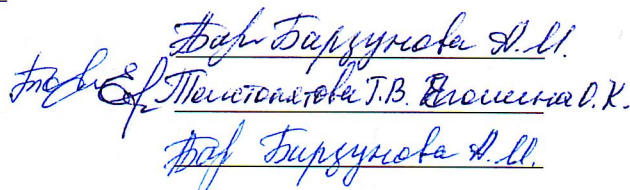 Бар Барзунова А.И.
Толстопятова Т.В. Ягошина О.К.
Бар Барзунова А.И.